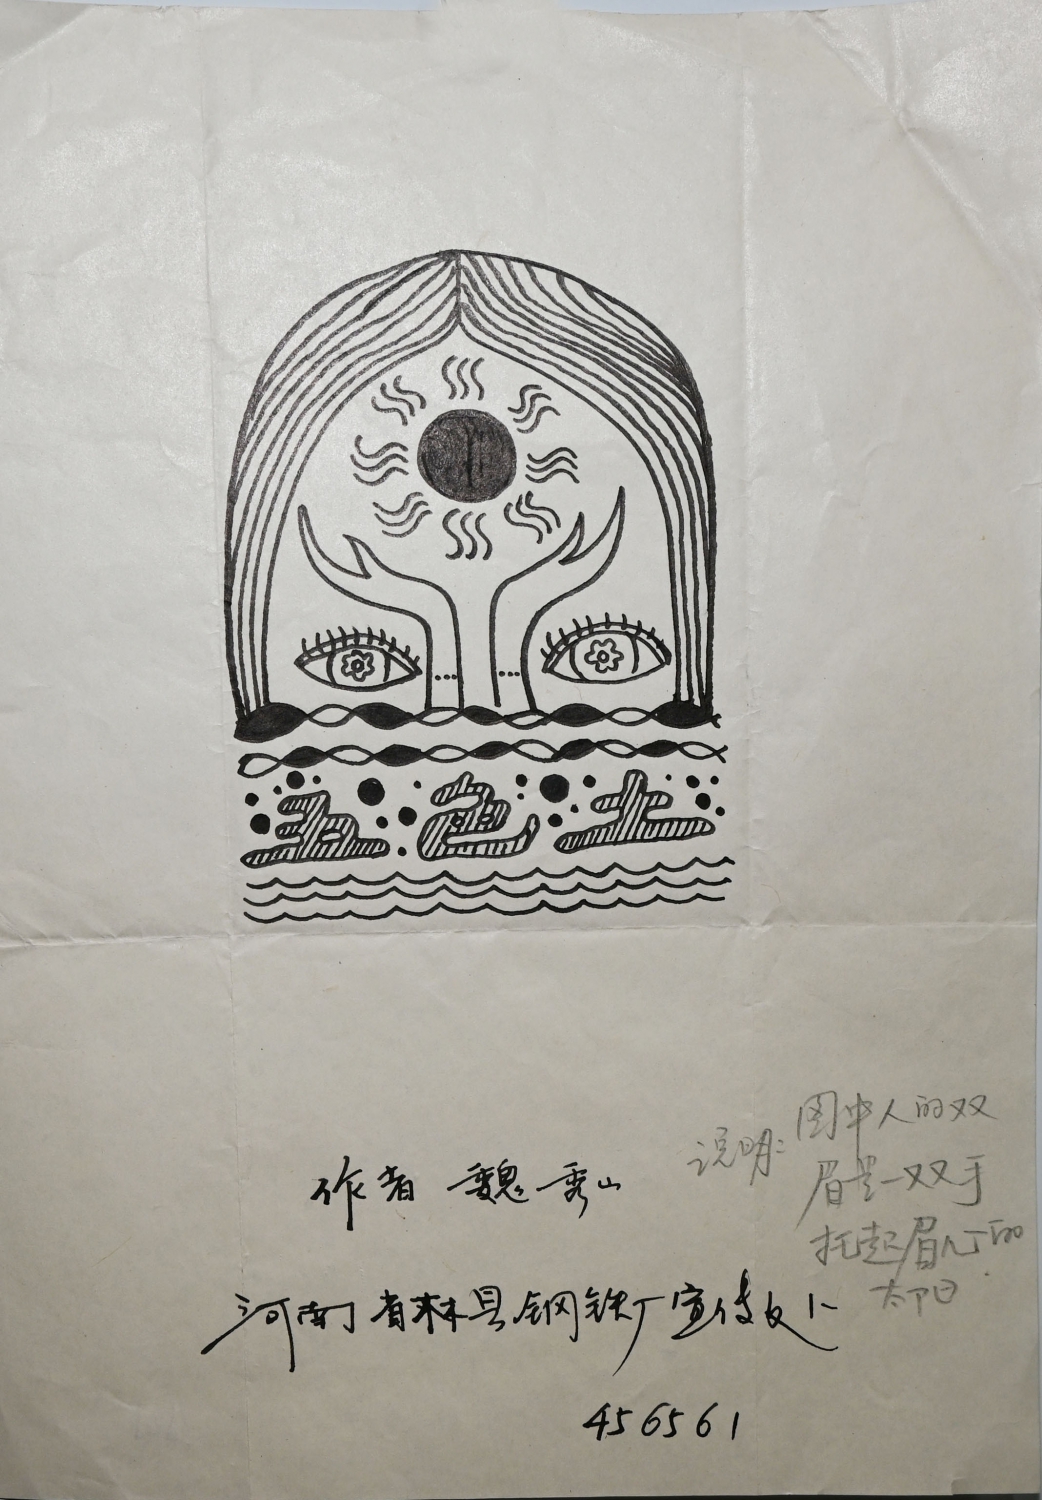 五色土
作者 魏秀山
说明：图中人的双
眉是一双手
托起眉心丁的
太阳.
河南省林县钢铁厂宣传处
456561